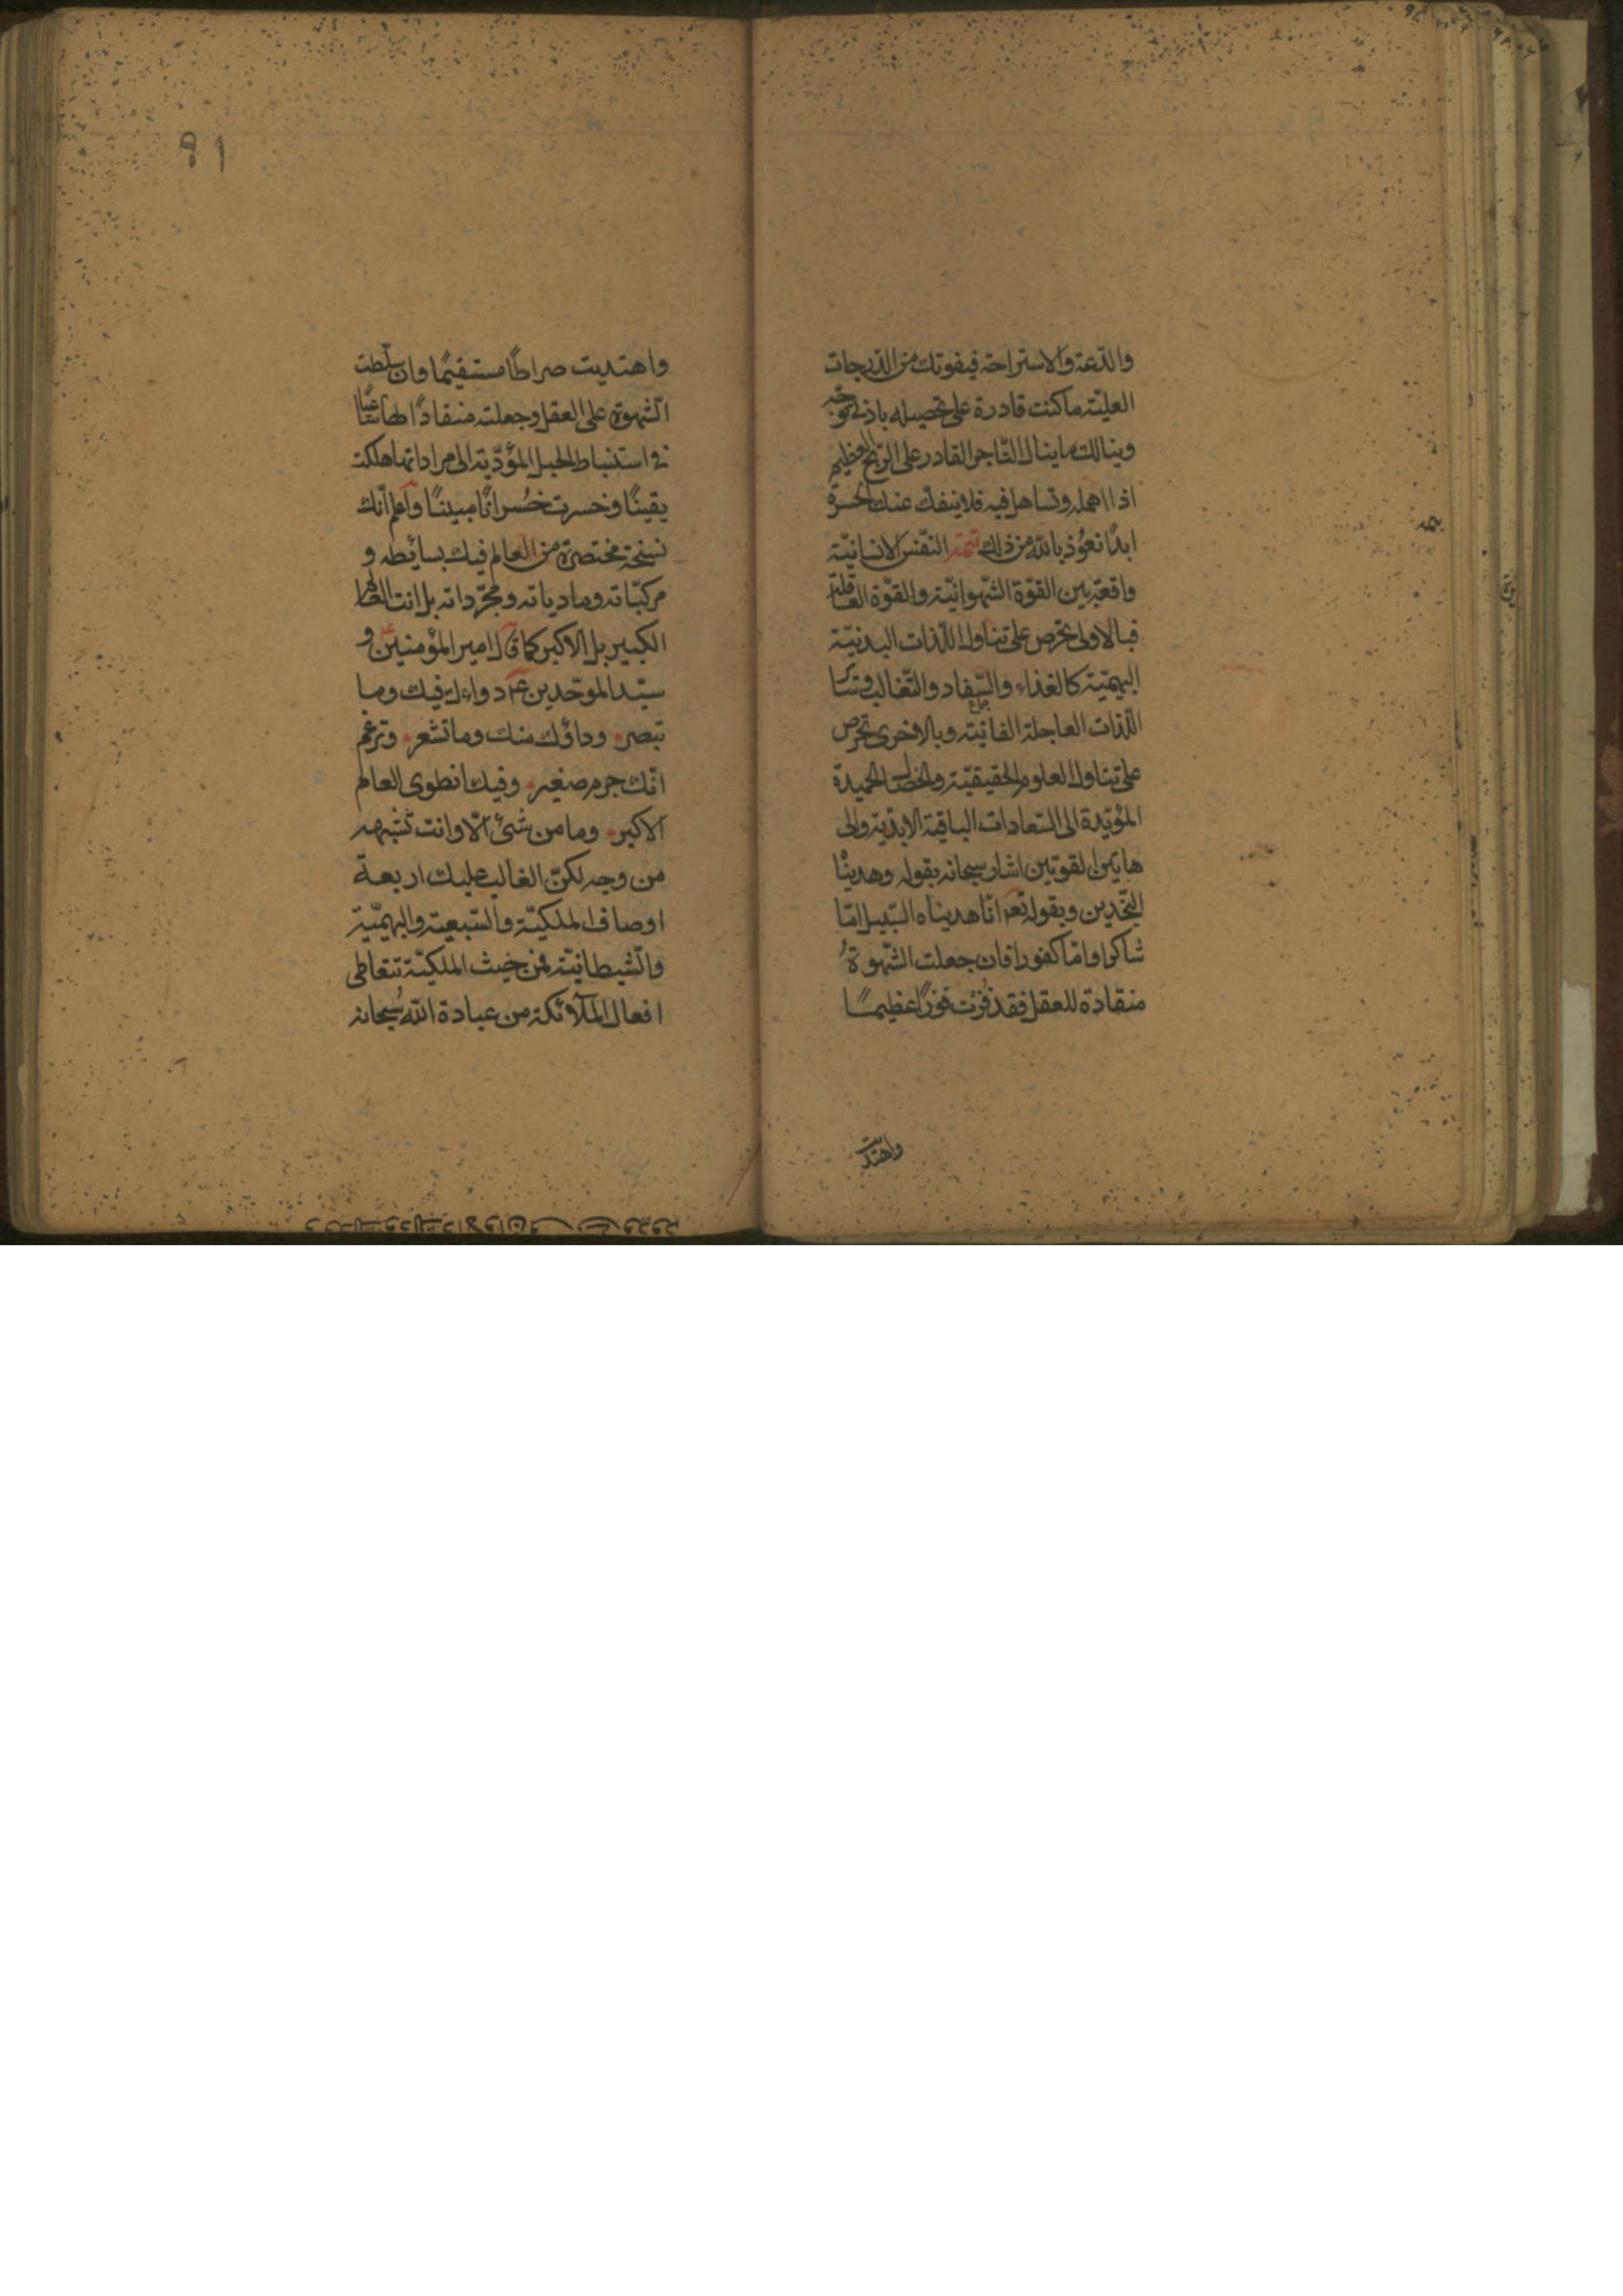 والدّعة والاستراحة فيفوتك من الدّرجات
العليّة ما كنت قادرة على تحصيله باذنى توجّه
وينالك ما ينال التّاجر القادر على الرّبح العظيم
اذا اهمله وتساهل فيه فلا ينفكّ عنك الحسرة
ابدًا نعوُذ باللّه من ذلك تتمّة النّفس الانسانيّة
واقعة بين القوّة الشّهوانيّة والقوّة العاقلة
فبالاولى تحرص على تناول اللّذات البدنيّة
البهيميّة كالغذاء والسّفاد والتّغالب وسائر
جماع
اللّذات العاجلة الفانيّة وبالاخرى تحرص
على تناول العلوم الحقيقيّة والخصال الحميدة
المؤيّدة الى السّعادات الباقية الابديّة والى
هاتين القوتين اشار سبحانه بقوله وهديناه
النّجدين وبقوله تعم انّا هديناه السّبيل امّا
شاكرا وامّا كفورا فان جعلت الشّهوةُ
منقادة للعقل فقد فُزْت فوزًا عظيمًا
واهتديت
واهتديت صراطًا مستقيمًا وان سلّطت
الشّهوة على العقل وجعلته منقادًا طائعًا
فى استنباط الحيل المؤدّية الى مراداتها هلكت
يقينًا وخسرت خُسرانًا مبينًا واعلم انّك
نسخة مختصرة من العالم فيك بسائطه و
مركبّاته وماديّاته ومجرّداته بل انت العالم
الكبير بل الاكبر كما قال امير المؤمنين و
سيّد الموحّدين عم دواءك فيك وما
تبصر وداؤك منك وما تشعر وتزعم
انّك جرم صغير وفيك انطوى العالم
الاكبر وما من شئ الّا وانت تشبهه
من وجه لكنّ الغالب عليك اربعة
اوصاف الملكيّة والسّبعيّة والبهيميّة
والشّيطانيّة فمن حيث الملكيّة تتعاطى
افعال الملآئكة من عبادة اللّه سُبحانه